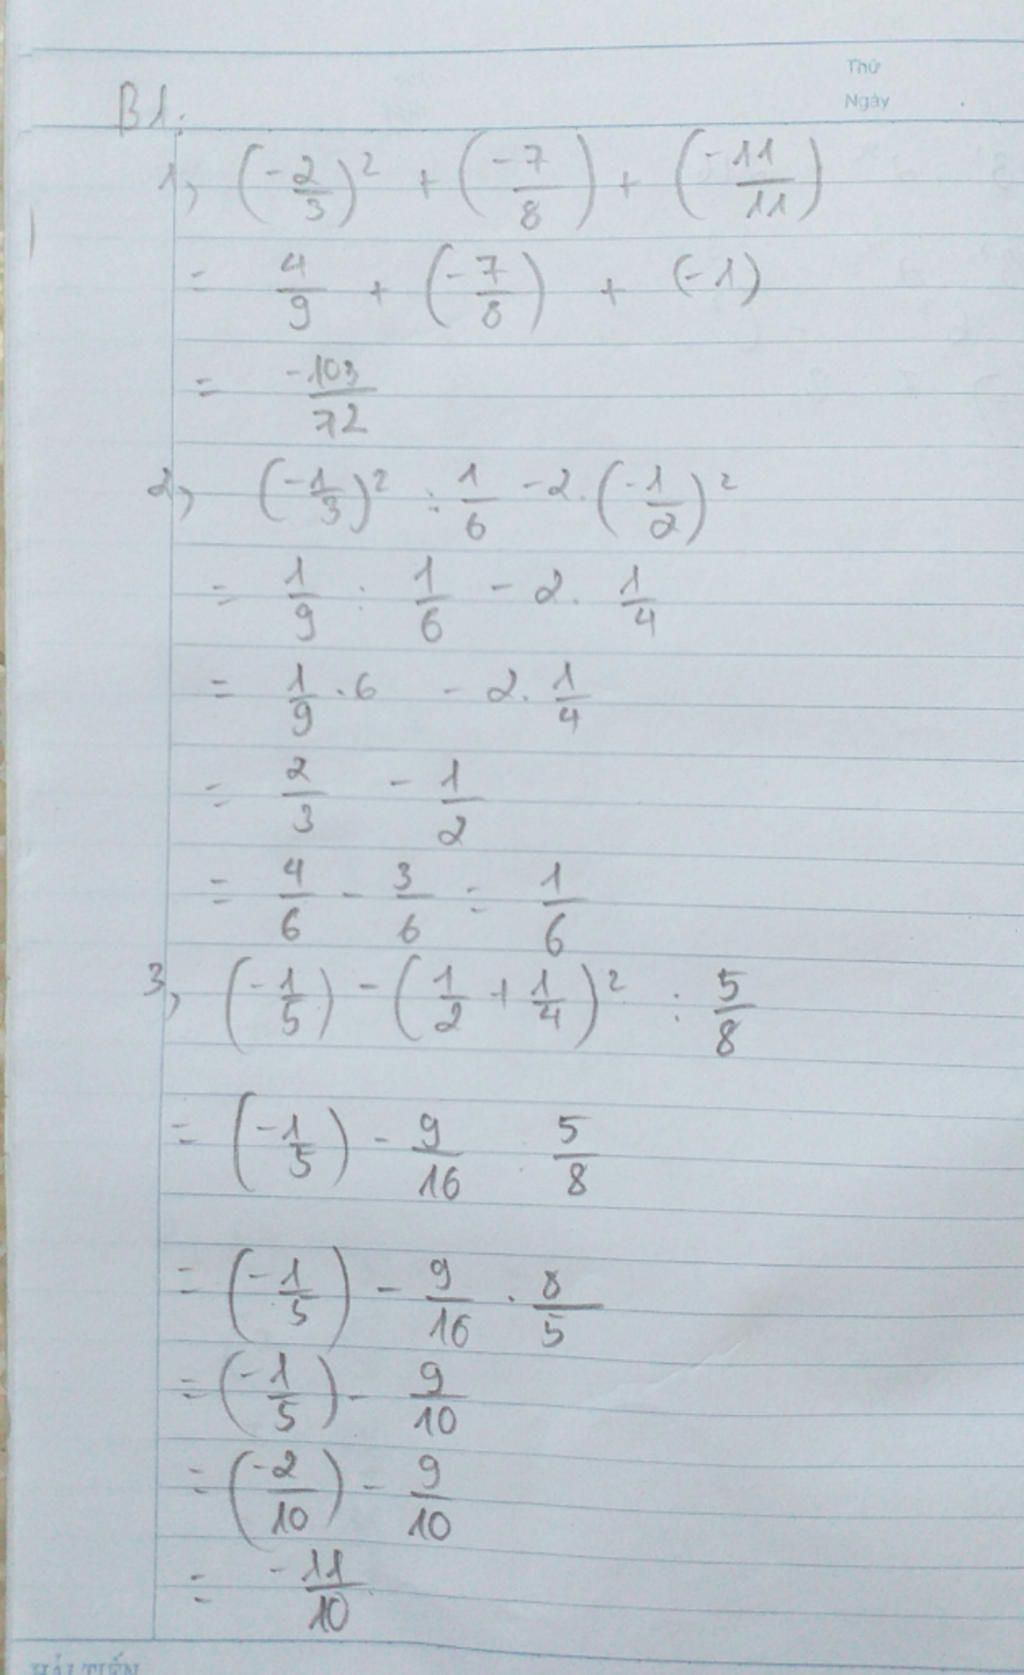 Thứ
Ngày
B1:
1, (-2/3)² + (-7/8) + (-11/11)
= 4/9 + (-7/8) + (-1)
= -103/72
2, (-1/3)² : 1/6 - 2 . (-1/2)²
= 1/9 : 1/6 - 2 . 1/4
= 1/9 . 6 - 2 . 1/4
= 2/3 - 1/2
= 4/6 - 3/6 = 1/6
3, (-1/5) - (1/2 + 1/4)² : 5/8
= (-1/5) - 9/16 : 5/8
= (-1/5) - 9/16 . 8/5
= (-1/5) - 9/10
= (-2/10) - 9/10
= -11/10
HẢI TIẾN